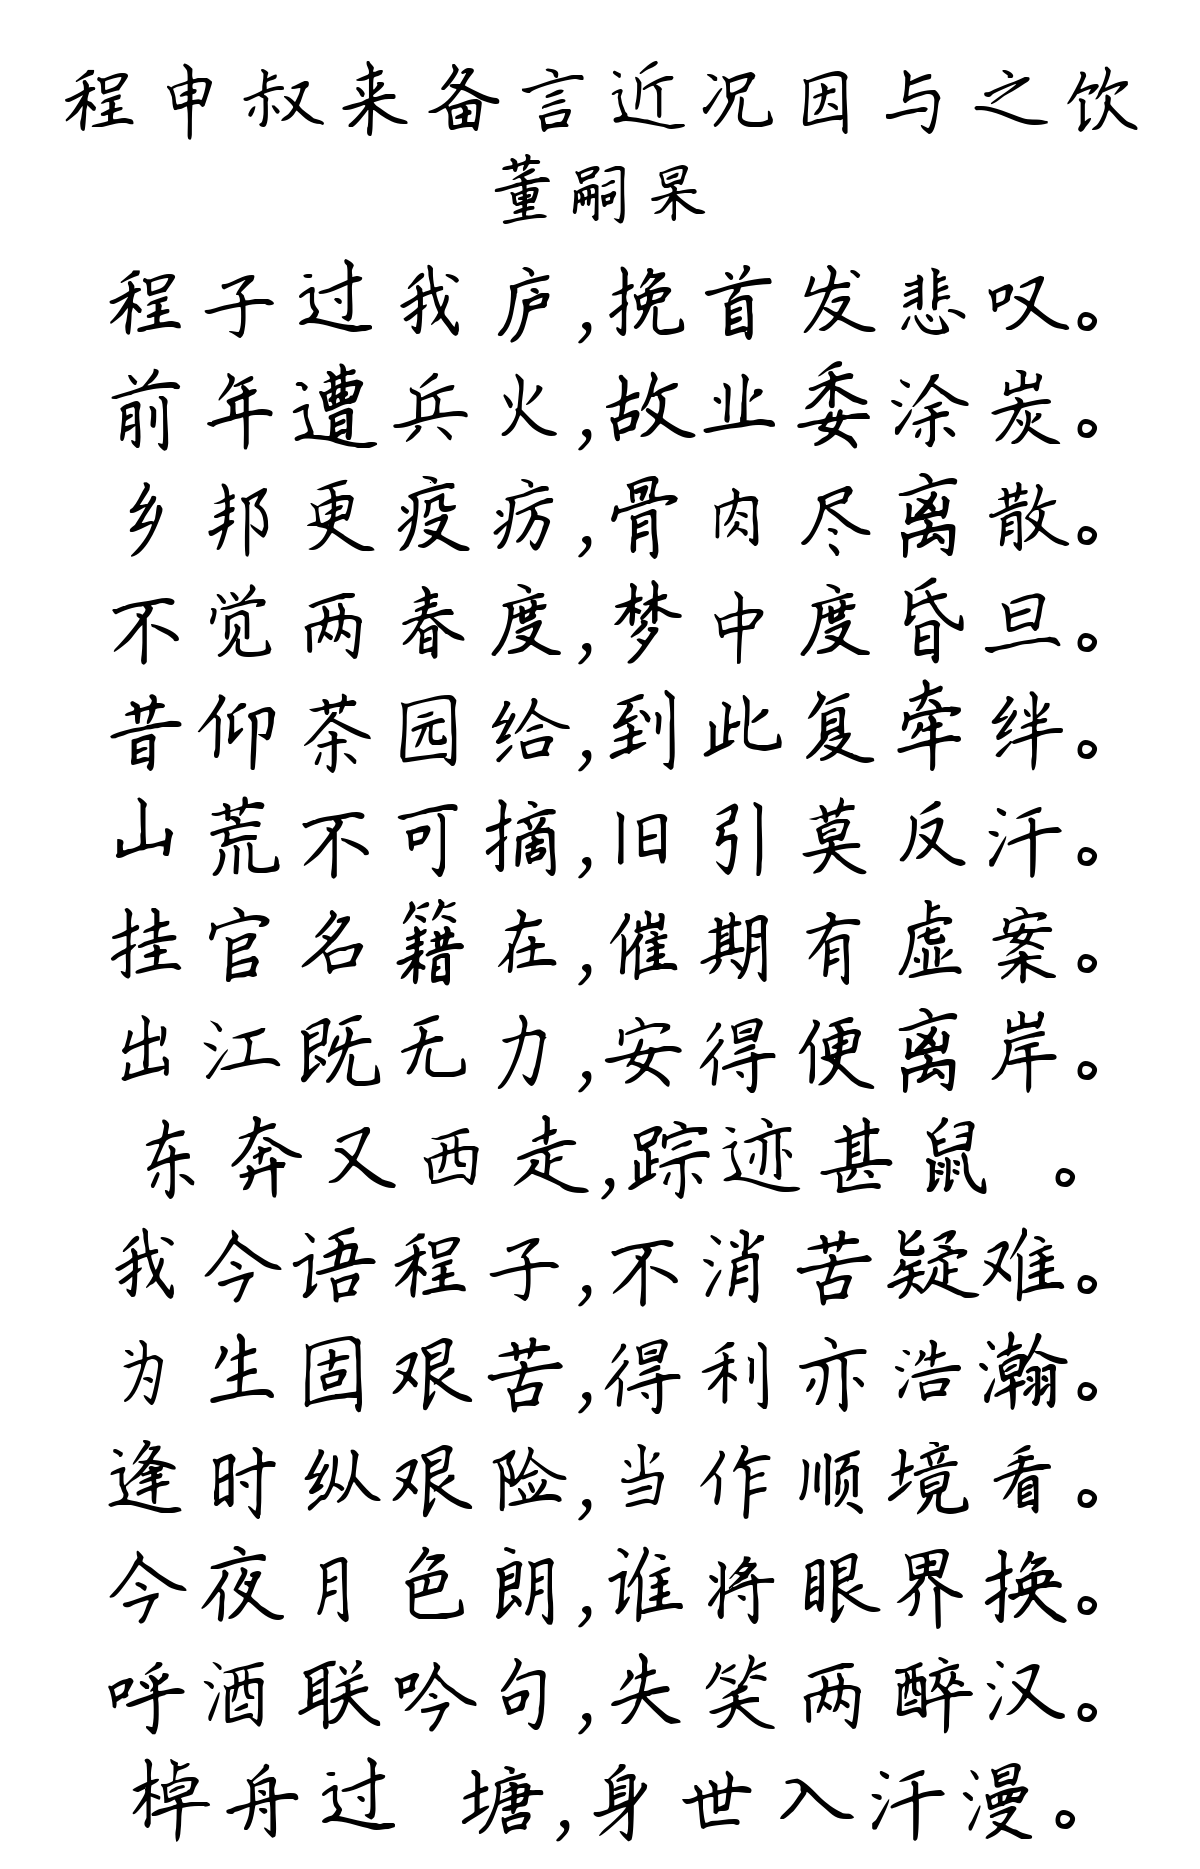 程申叔来备言近况因与之饮
董嗣杲
程子过我庐,挽首发悲叹。
前年遭兵火,故业委涂炭。
乡邦更疫疠,骨肉尽离散。
不觉两春度,梦中度昏旦。
昔仰茶园给,到此复牵绊。
山荒不可摘,旧引莫反汗。
挂官名籍在,催期有虚案。
出江既无力,安得便离岸。
东奔又西走,踪迹甚鼠 。
我今语程子,不消苦疑难。
为生固艰苦,得利亦浩瀚。
逢时纵艰险,当作顺境看。
今夜月色朗,谁将眼界换。
呼酒联吟句,失笑两醉汉。
棹舟过 塘,身世入汗漫。